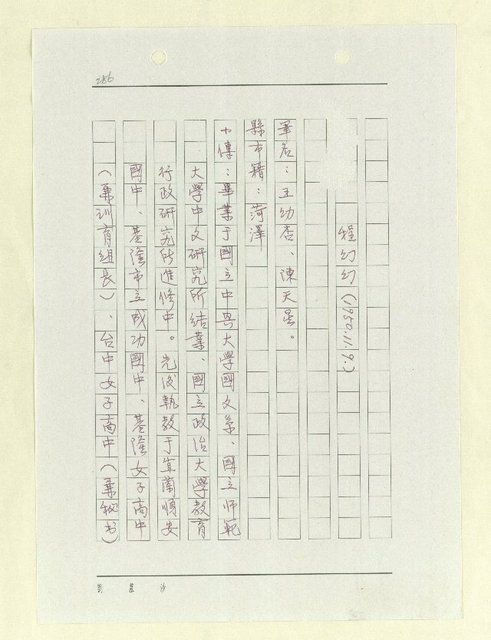 286
程幻幻(1950.11.9.)
筆名：王幼杏、陳天星。
縣市籍：菏澤
小傳：畢業于國立中興大學國文系、國立師範
大學中文研究所結業、國立政治大學教育
行政研究所進修中。先後執教于宜蘭順安
國中、基隆市立成功國中、基隆女子高中
(兼訓育組長)、台中女子高中(兼秘书)